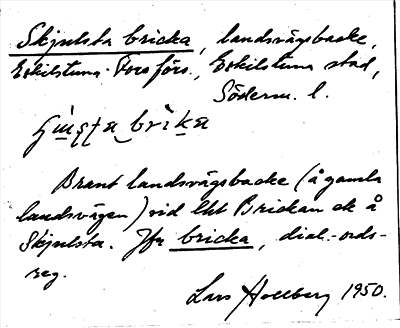 Skjulsta bricka, landsvägsbacke,
Eskilstuna-Fors förs., Eskilstuna stad,
Söderm. l.
brìka
Brant landsvägsbacke (å gamla
landsvägen) vid lht Brickan ek å
Skjulsta. Jfr bricka, dial.-ords-
reg.
Lars Hellberg 1950.